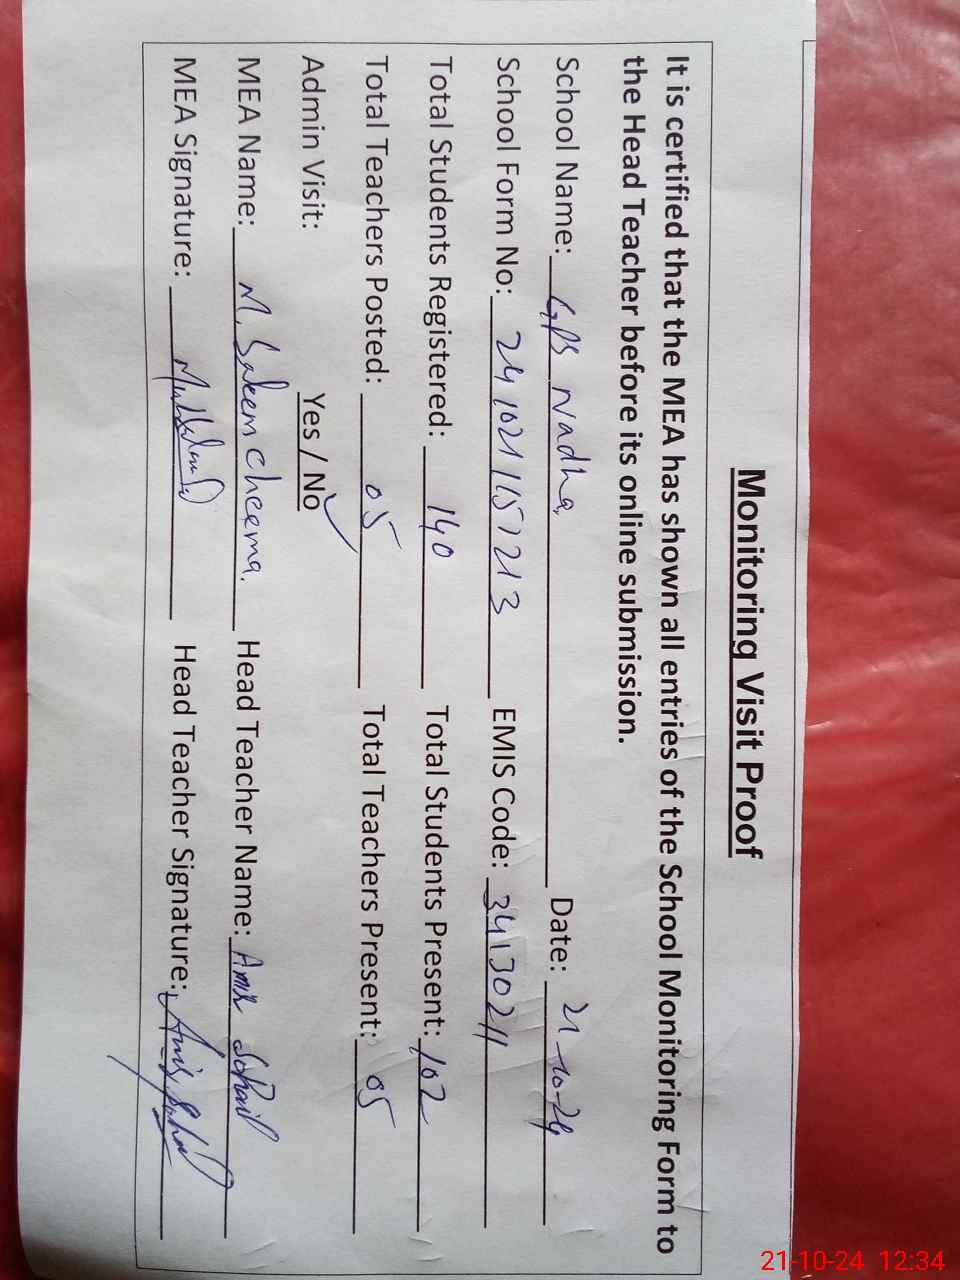 Monitoring Visit Proof
It is certified that the MEA has shown all entries of the School Monitoring Form to
the Head Teacher before its online submission.
School Name: GPS Nadha Date: 21-10-24
School Form No: EMIS Code: 34130211
Total Students Registered: 140 Total Students Present: 102
Total Teachers Posted: 05 Total Teachers Present: 05
Admin Visit: Yes / No
MEA Name: M. Saleem cheema. Head Teacher Name: Amir Sohail
MEA Signature: Head Teacher Signature:
21-10-24 12:34